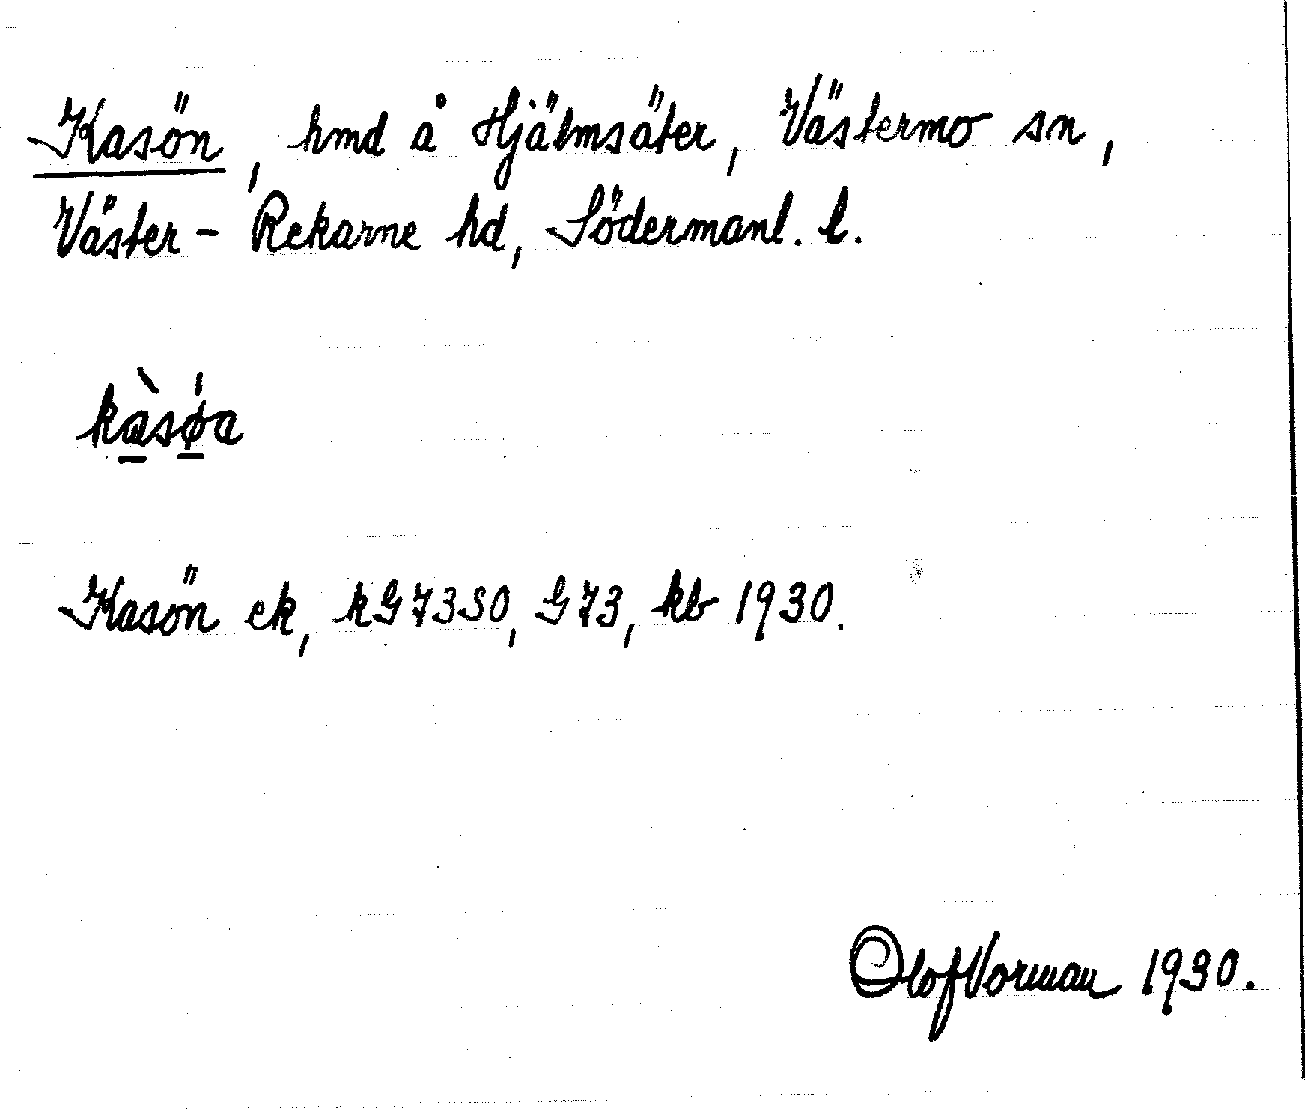 Kasön, hmd å Hjälmsäter, Västermo sn,
Väster-Rekarne hd, Södermanl. l.
kàsø̍a
Kasön ek, kG73SO, G73, kb 1930.
Olof Vorman 1930.